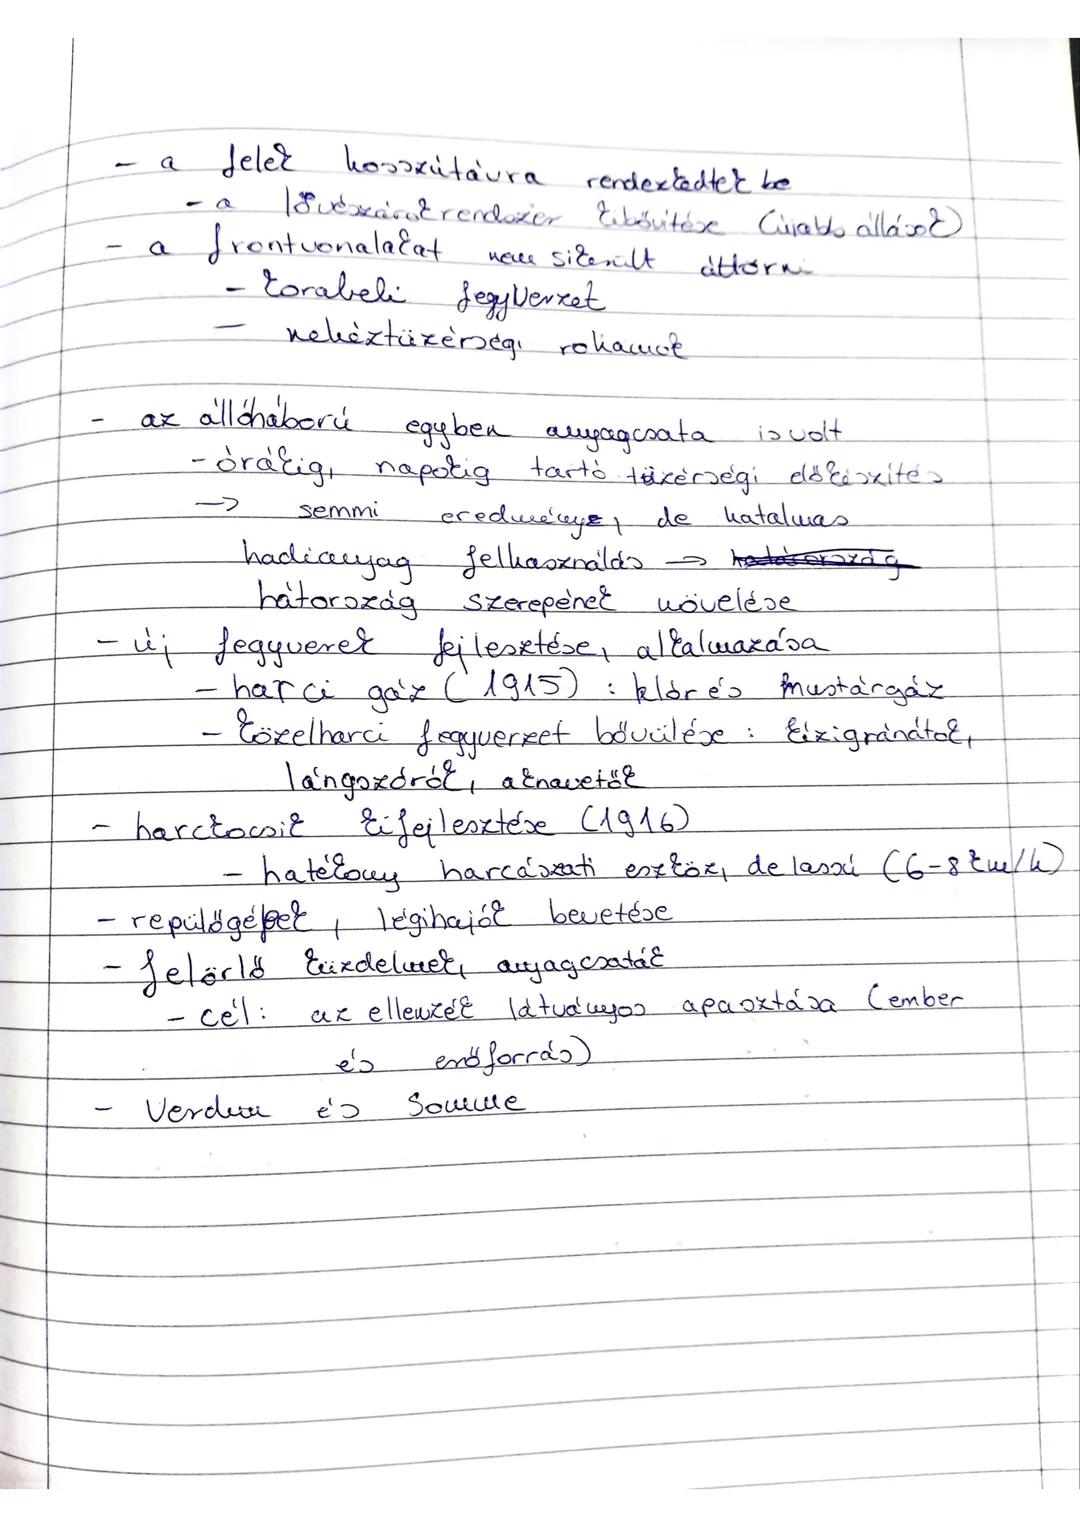 - a felek hosszútávra rendezkedtek be
- a lövészárokrendszer kibővítése (újabb állások)
- a frontvonalakat nem sikerült áttörni
- korabeli fegyverzet
- nehéztüzérségi rohamok
- az állóháború egyben anyagcsata is volt
- órákig, napokig tartó tüzérségi előkészítés
→ semmi eredménye, de hatalmas
hadianyag felhasználás → hátország
hátország szerepének növelése
- új fegyverek fejlesztése, alkalmazása
- harci gáz (1915) : klór és mustárgáz
- közelharci fegyverzet bővülése : kézigránátok,
lángszórók, aknavetők
- harckocsik kifejlesztése (1916)
- hatékony harcászati eszköz, de lassú (6-8 km/h)
- repülőgépek, léghajók bevetése
- felőrlő küzdelmek, anyagcsaták
- cél: az ellenzék látványos apasztása (ember
és erőforrás)
- Verdun és Somme